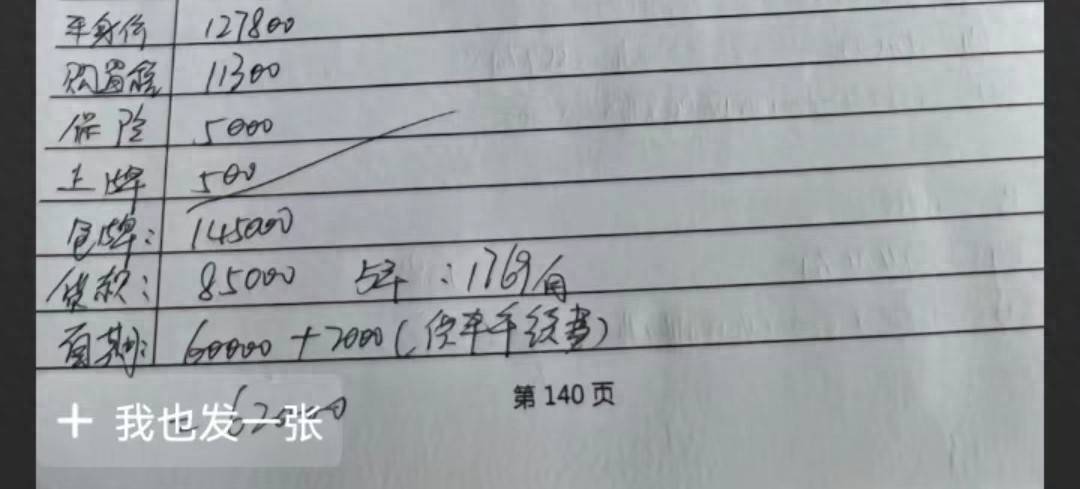 车身价 127800
购置税 11300
保险 5000
上牌 500
包牌: 145000
贷款: 85000 5年 : 1769/月
首期: 60000 + 2000 (贷车手续费)
62000
第 140 页
+ 我也发一张